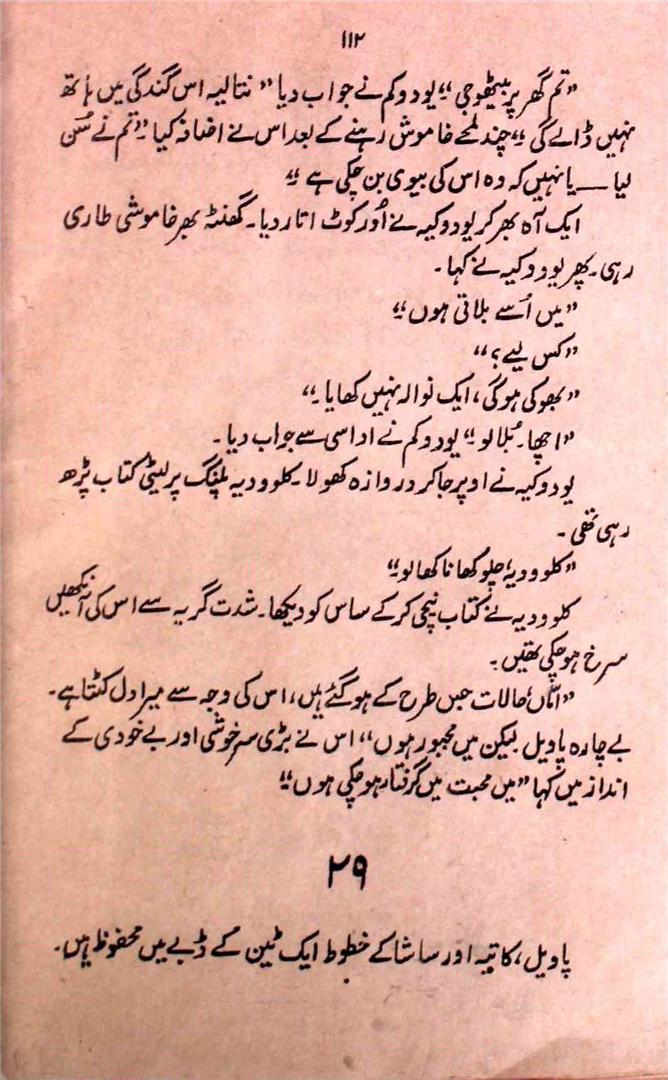 ۱۱۲
”تم گھر پر بیٹھو جی“ یودوکم نے جواب دیا ”نتالیہ اس گندگی میں ہاتھ
نہیں ڈالے گی“ چند لمحے خاموش رہنے کے بعد اس نے اضافہ کیا ”تم نے سُن
لیا ـــ یا نہیں کہ وہ اس کی بیوی بن چکی ہے“
ایک آہ بھر کر یودوکیہ نے اُور کوٹ اتار دیا۔ گھنٹہ بھر خاموشی طاری
رہی۔ پھر یودوکیہ نے کہا۔
”میں اُسے بلاتی ہوں“
”کس لیے؟“
”بھوکی ہوگی، ایک نوالہ نہیں کھایا۔“
”اچھا۔ بُلا لو“ یودوکم نے اداسی سے جواب دیا۔
یودوکیہ نے اوپر جا کر دروازہ کھولا۔ کلوودیہ پلنگ پر لیٹی کتاب پڑھ
رہی تھی۔
”کلوودیہ، چلو کھانا کھا لو“
کلوودیہ نے کتاب نیچی کر کے ساس کو دیکھا۔ شدت گریہ سے اس کی آنکھیں
سرخ ہو چکی تھیں۔
”امّاں، حالات جس طرح کے ہو گئے ہیں، اس کی وجہ سے میرا دل کٹتا ہے۔
بے چارہ پاویل لیکن میں مجبور ہوں“ اس نے بڑی سرخوشی اور بے خودی کے
انداز میں کہا ”میں محبت میں گرفتار ہو چکی ہوں“
۲۹
پاویل، کاتیہ اور ساشا کے خطوط ایک ٹین کے ڈبے میں محفوظ ہیں۔